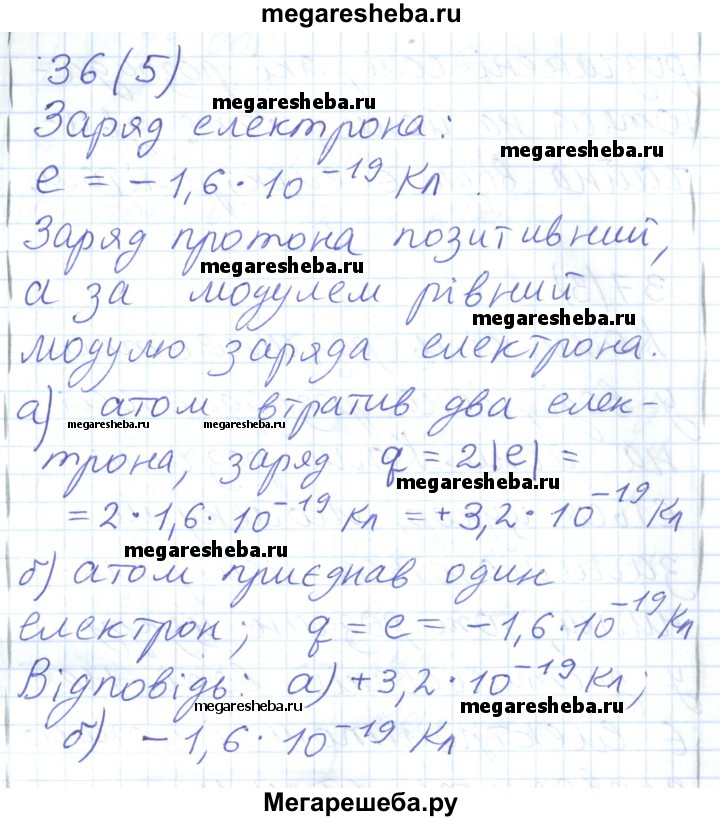 megaresheba.ru
36(5)
megaresheba.ru
Заряд електрона:
megaresheba.ru
e = -1,6·10⁻¹⁹ Кл
Заряд протона позитивний,
megaresheba.ru
а за модулем рівний
megaresheba.ru
модулю заряда електрона.
а) атом втратив два елек-
megaresheba.ru megaresheba.ru
трона, заряд q = 2|e| =
megaresheba.ru
= 2·1,6·10⁻¹⁹ Кл = +3,2·10⁻¹⁹ Кл
megaresheba.ru
б) атом приєднав один
електрон; q = e = -1,6·10⁻¹⁹ Кл
Відповідь: а) +3,2·10⁻¹⁹ Кл;
megaresheba.ru megaresheba.ru
б) -1,6·10⁻¹⁹ Кл
Мегарешеба.ру